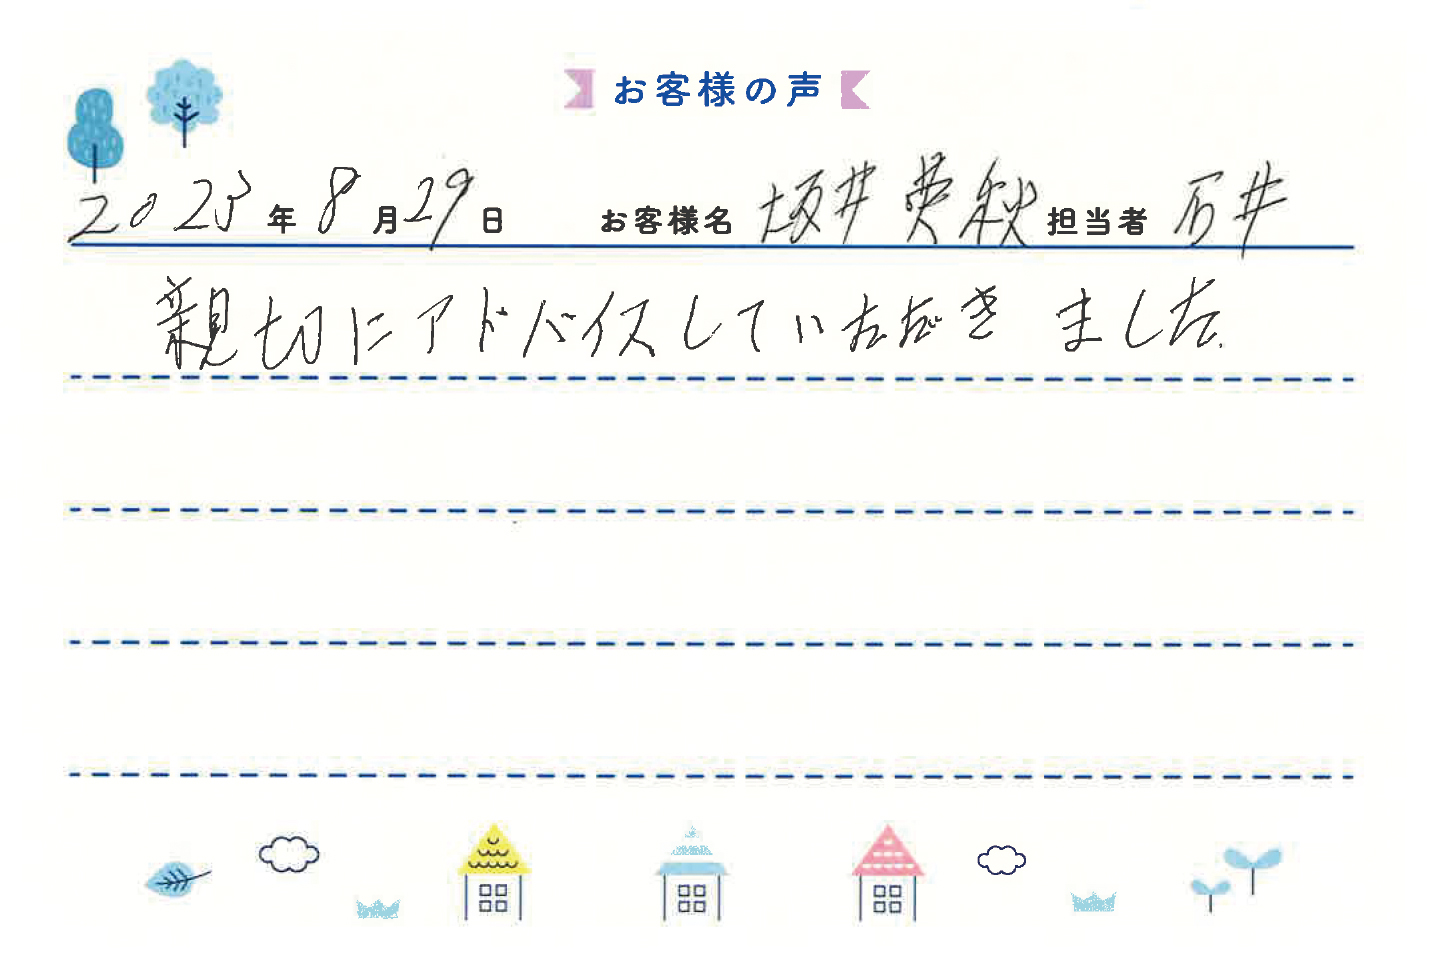 お客様の声
2025年8月29日 お客様名 坂井英秋 担当者 石井
親切にアドバイスしていただきました.